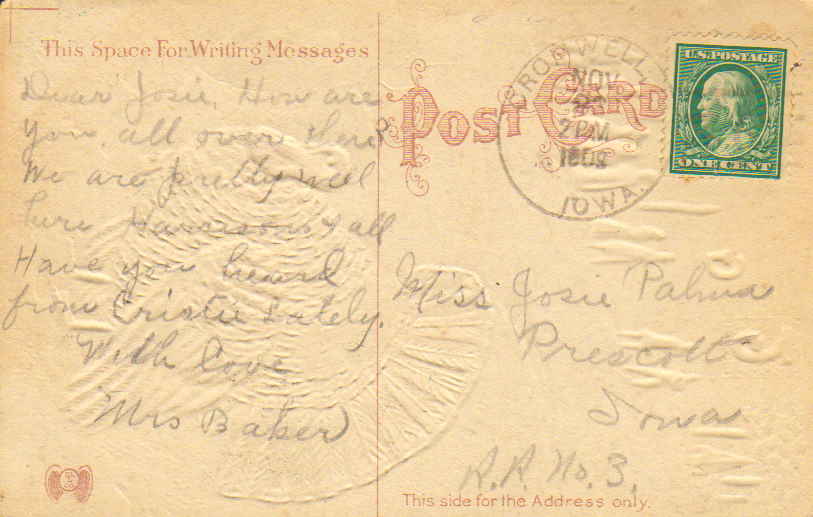 This Space For Writing Messages
Dear Josie, How are
you all over there
We are pretty well
here Harrisons & all
Have you heard
from Cristie Lately.
With love
Mrs Baker
POST CARD
CROMWELL,
NOV
2 PM
IOWA.
U.S. POSTAGE
ONE CENT
Miss Josie Palma
Prescott
Iowa
R.R. No. 3.
This side for the Address only.